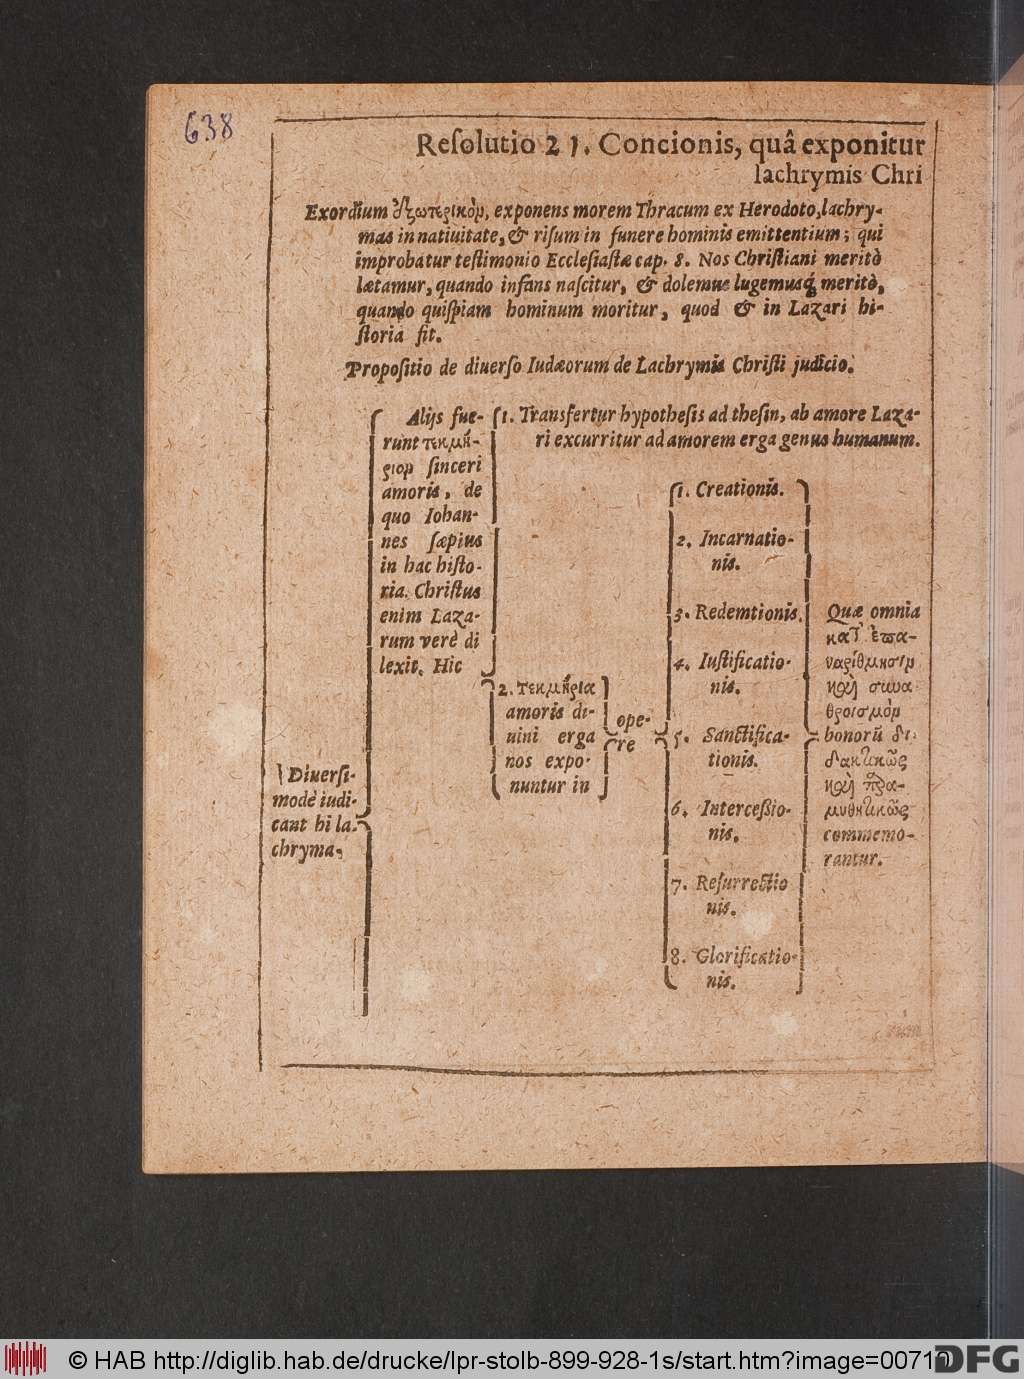 638
Reſolutio 21. Concionis, quâ exponitur
lachrymis Chri
Exordium ἐξωτερικὸν, exponens morem Thracum ex Herodoto, lachry-
mas in natiuitate, & riſum in funere hominis emittentium; qui
improbatur teſtimonio Eccleſiaſtæ cap. 8. Nos Chriſtiani meritò
lætamur, quando infans naſcitur, & dolemus lugemusq́ meritò,
quando quiſpiam hominum moritur, quod & in Lazari hi-
ſtoria fit.
Propoſitio de diuerſo Iudæorum de Lachrymis Chriſti judicio.
Diuerſi-
modè iudi-
cant hi la-
chryma,
Alijs fue-
runt τεκμή-
ριον ſinceri
amoris, de
quo Iohan-
nes ſæpius
in hac hiſto-
ria. Chriſtus
enim Laza-
rum verè di
lexit. Hic
1. Transfertur hypotheſis ad theſin, ab amore Laza-
ri excurritur ad amorem erga genus humanum.
2. τεκμήρια
amoris di-
uini erga
nos expo-
nuntur in
ope-
re
1. Creationis.
2. Incarnatio-
nis.
3. Redemtionis.
4. Iuſtificatio-
nis.
5. Sanctifica-
tionis.
6. Interceßio-
nis.
7. Reſurrectio
nis.
8. Glorificatio-
nis.
Quæ omnia
κατ' ἐπα-
ναρίθμησιν
καὶ συνα
θροισμὸν
bonorũ δι-
δακτικῶς
καὶ παρα-
μυθητικῶς
commemo-
rantur.
© HAB http://diglib.hab.de/drucke/lpr-stolb-899-928-1s/start.htm?image=00710
DFG